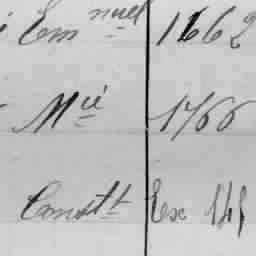 Em nuel 1662
Mié 1766
Constt Ex 141